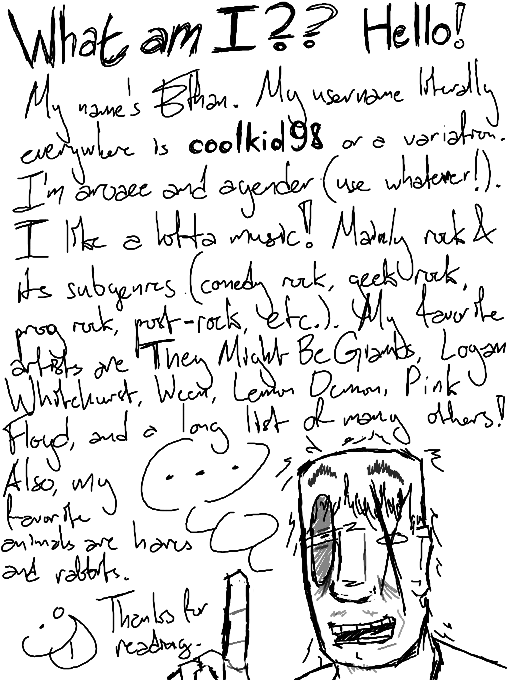 What am I?? Hello!
My name's Ethan. My username literally
everywhere is coolkid98 or a variation.
I'm aroace and agender (use whatever!).
I like a lotta music! Mainly rock &
its subgenres (comedy rock, geek rock,
prog rock, post-rock, etc.). My favorite
artists are They Might Be Giants, Logan
Whitehurst, Ween, Lemon Demon, Pink
Floyd, and a long list of many others!
Also, my
favorite
animals are hares
and rabbits.
...
Thanks for
reading.